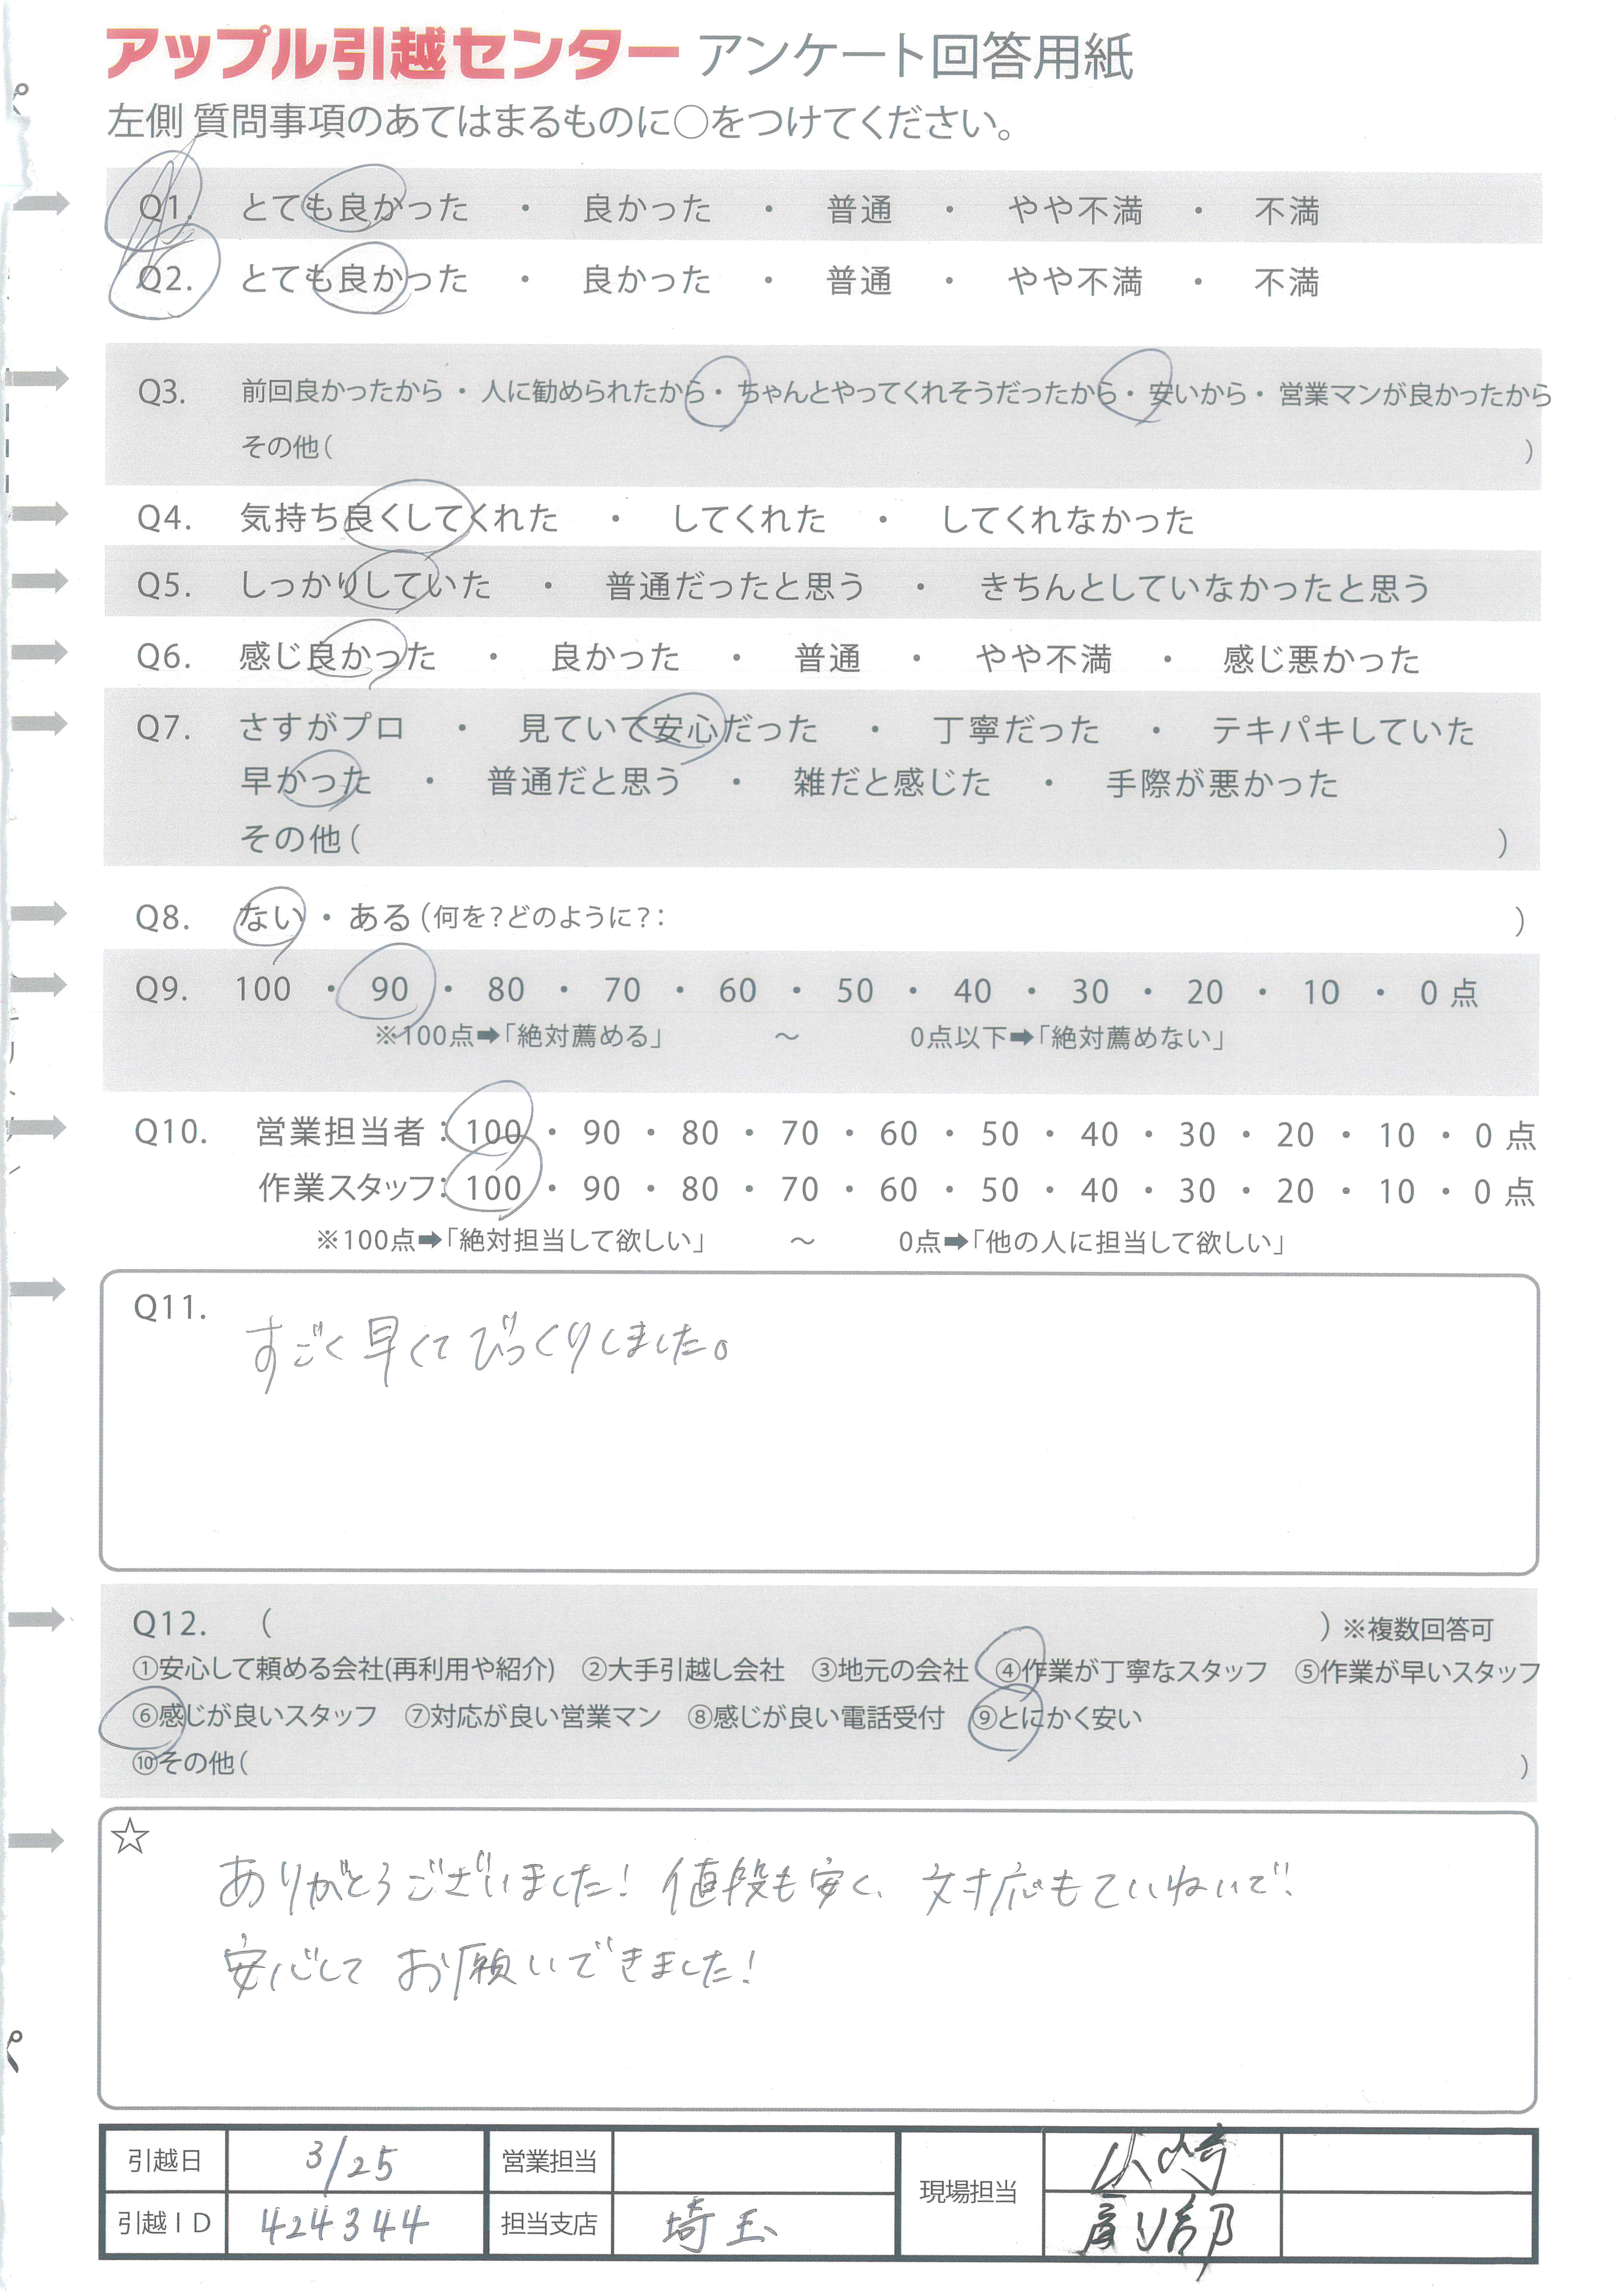 アップル引越センター アンケート回答用紙
左側 質問事項のあてはまるものに○をつけてください。
Q1. とても良かった ・ 良かった ・ 普通 ・ やや不満 ・ 不満
Q2. とても良かった ・ 良かった ・ 普通 ・ やや不満 ・ 不満
Q3. 前回良かったから ・ 人に勧められたから ・ ちゃんとやってくれそうだったから ・ 安いから ・ 営業マンが良かったから
その他( )
Q4. 気持ち良くしてくれた ・ してくれた ・ してくれなかった
Q5. しっかりしていた ・ 普通だったと思う ・ きちんとしていなかったと思う
Q6. 感じ良かった ・ 良かった ・ 普通 ・ やや不満 ・ 感じ悪かった
Q7. さすがプロ ・ 見ていて安心だった ・ 丁寧だった ・ テキパキしていた
早かった ・ 普通だと思う ・ 雑だと感じた ・ 手際が悪かった
その他( )
Q8. ない ・ ある (何を?どのように?: )
Q9. 100 ・ 90 ・ 80 ・ 70 ・ 60 ・ 50 ・ 40 ・ 30 ・ 20 ・ 10 ・ 0 点
※100点➡「絶対薦める」 ～ 0点以下➡「絶対薦めない」
Q10. 営業担当者: 100 ・ 90 ・ 80 ・ 70 ・ 60 ・ 50 ・ 40 ・ 30 ・ 20 ・ 10 ・ 0 点
作業スタッフ: 100 ・ 90 ・ 80 ・ 70 ・ 60 ・ 50 ・ 40 ・ 30 ・ 20 ・ 10 ・ 0 点
※100点➡「絶対担当して欲しい」 ～ 0点➡「他の人に担当して欲しい」
Q11.
すごく早くてびっくりしました。
Q12. ( ) ※複数回答可
①安心して頼める会社(再利用や紹介) ②大手引越し会社 ③地元の会社 ④作業が丁寧なスタッフ ⑤作業が早いスタッフ
⑥感じが良いスタッフ ⑦対応が良い営業マン ⑧感じが良い電話受付 ⑨とにかく安い
⑩その他( )
☆
ありがとうございました! 値段も安く、対応もていねいで、
安心して お願いできました!
引越日 3/25 営業担当 現場担当 山崎
引越ID 424344 担当支店 埼玉